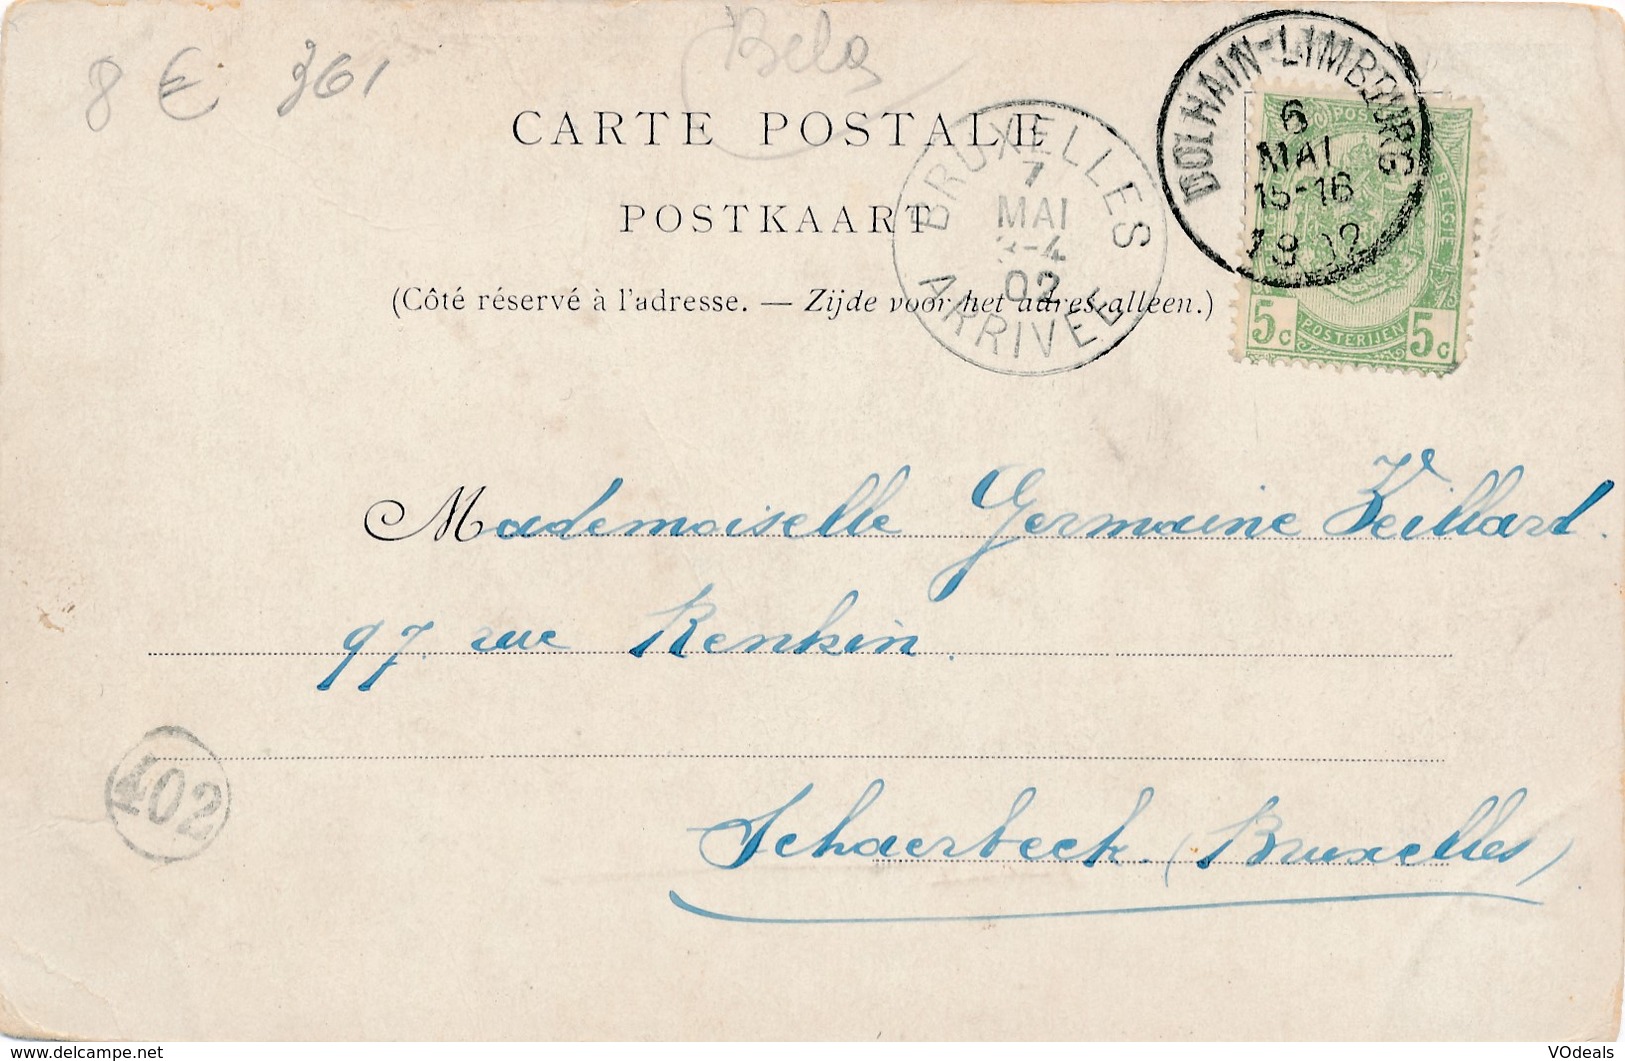 8 € 361
CARTE POSTALE
POSTKAART
(Côté réservé à l'adresse. — Zijde voor het adres alleen.)
BRUXELLES
7
MAI
3-4
02
ARRIVEE
DOLHAIN-LIMBOURG
6
MAI
15-16
1902
POSTERIJEN
5c 5c
BELGIE
Mademoiselle Germaine Veillard.
97. rue Renkin.
Schaerbeek. (Bruxelles)
402
www.delcampe.net
VOdeals